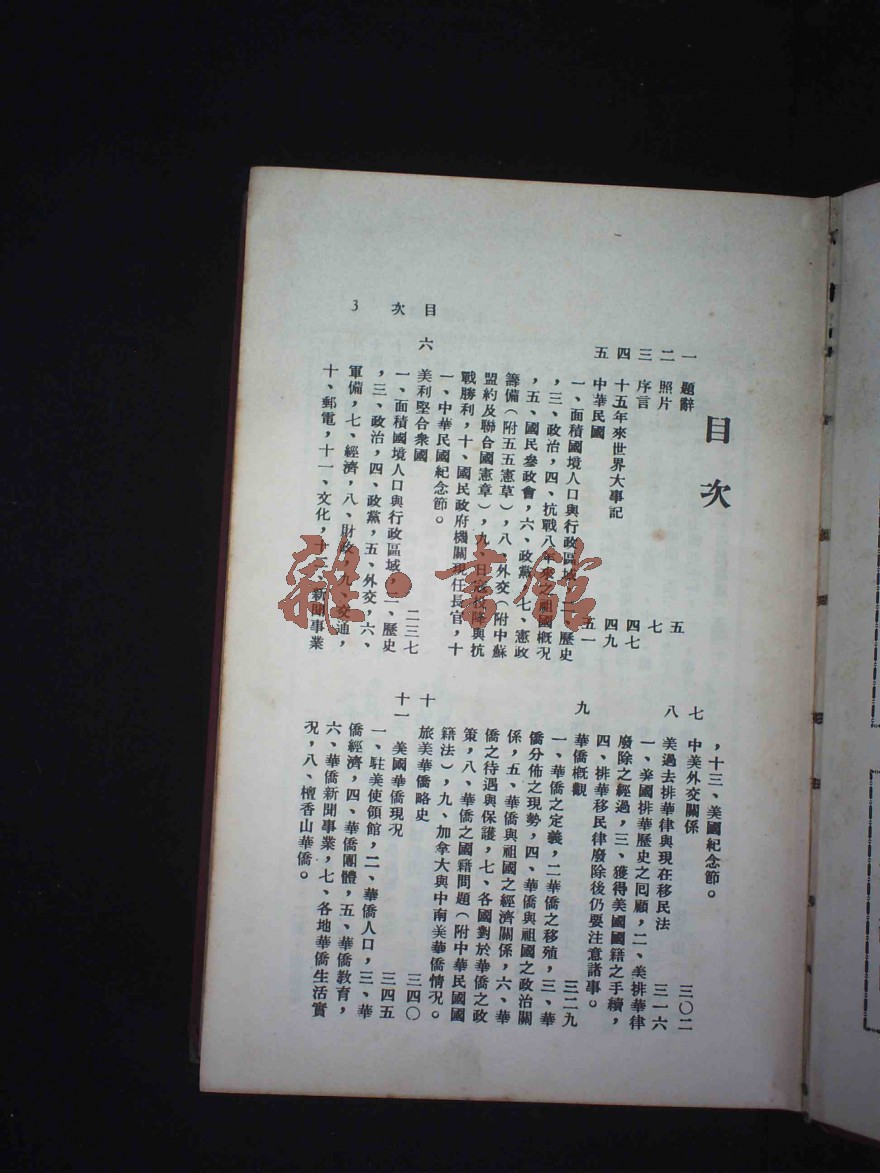 目次
一　題辭　五
二　照片　七
三　序言　四七
四　十五年來世界大事記　四九
五　中華民國　五一
一、面積國境人口與行政區域，二、歷史
，三、政治，四、抗戰八年來之祖國概況
，五、國民參政會，六、政黨，七、憲政
籌備（附五五憲草），八、外交（附中蘇
盟約及聯合國憲章），九、日寇投降與抗
戰勝利，十、國民政府機關現任長官，十
一、中華民國紀念節。
六　美利堅合衆國　二三七
一、面積國境人口與行政區域，二、歷史
，三、政治，四、政黨，五、外交，六、
軍備，七、經濟，八、財政，九、交通，
十、郵電，十一、文化，十二、新聞事業
，十三、美國紀念節。
七　中美外交關係　三〇二
八　美過去排華律與現在移民法　三一六
一、美國排華歷史之回顧，二、美排華律
廢除之經過，三、獲得美國國籍之手續，
四、排華移民律廢除後仍要注意諸事。
九　華僑概觀　三二九
一、華僑之定義，二華僑之移殖，三、華
僑分佈之現勢，四、華僑與祖國之政治關
係，五、華僑與祖國之經濟關係，六、華
僑之待遇與保護，七、各國對於華僑之政
策，八、華僑之國籍問題（附中華民國國
籍法），九、加拿大與中南美華僑情況。
十　旅美華僑略史　三四〇
十一　美國華僑現況　三四五
一、駐美使領館，二、華僑人口，三、華
僑經濟，四、華僑團體，五、華僑教育，
六、華僑新聞事業，七、各地華僑生活實
況，八、檀香山華僑。
目次　3
雜·書館